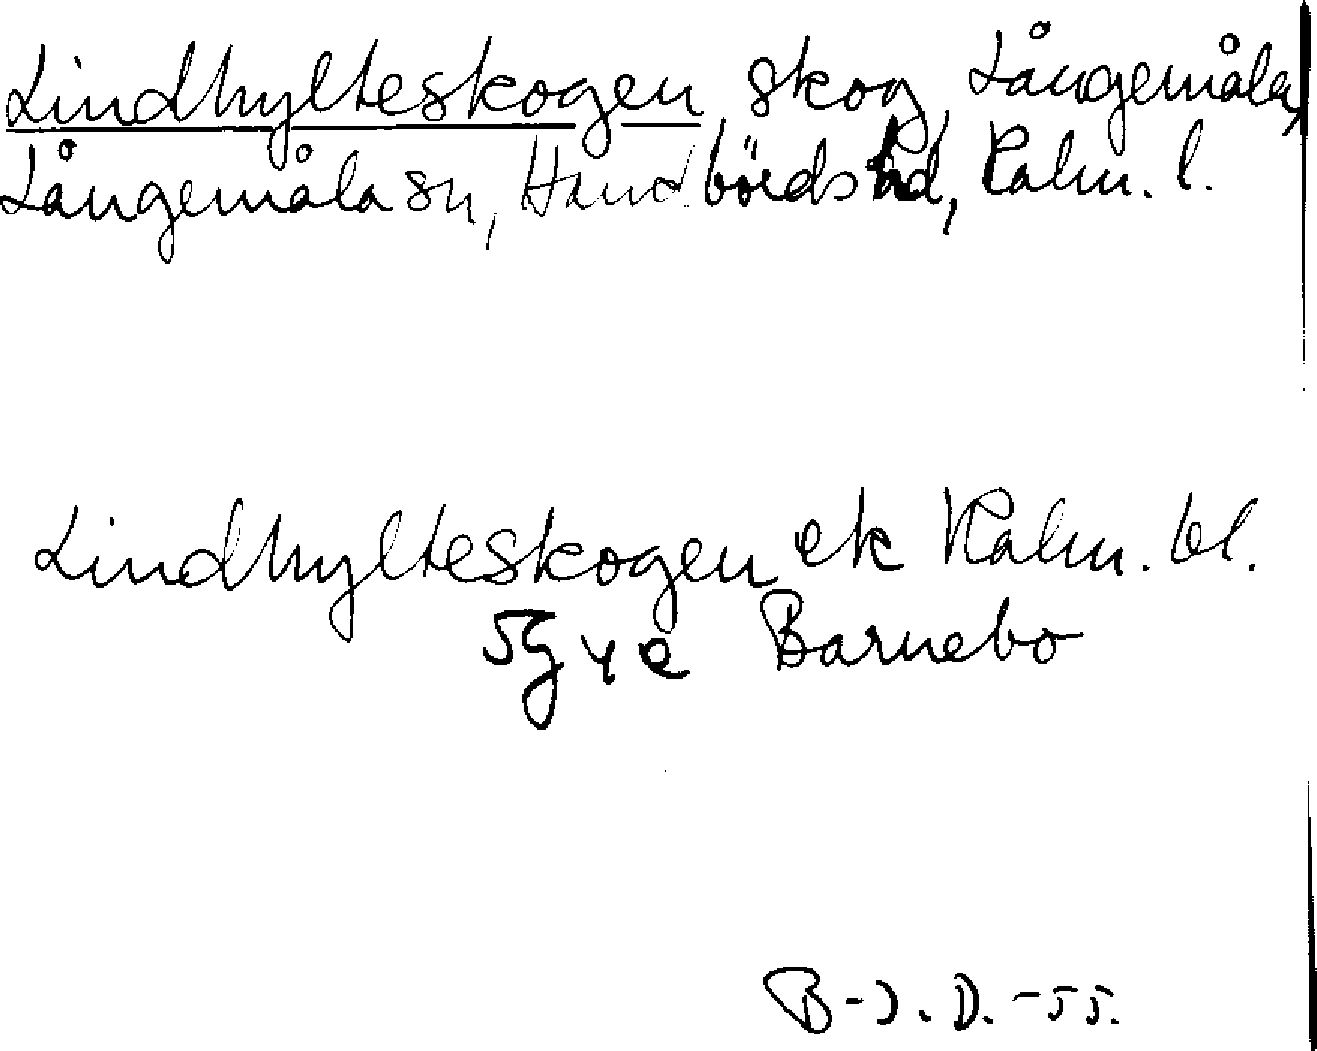 Lindhylteskogen skog, Långemåla,
Långemåla sn, Handbörds hd, Kalm. l.
Lindhylteskogen ek Kalm. bl.
5g4e Barnebo
B-J. D. -55.